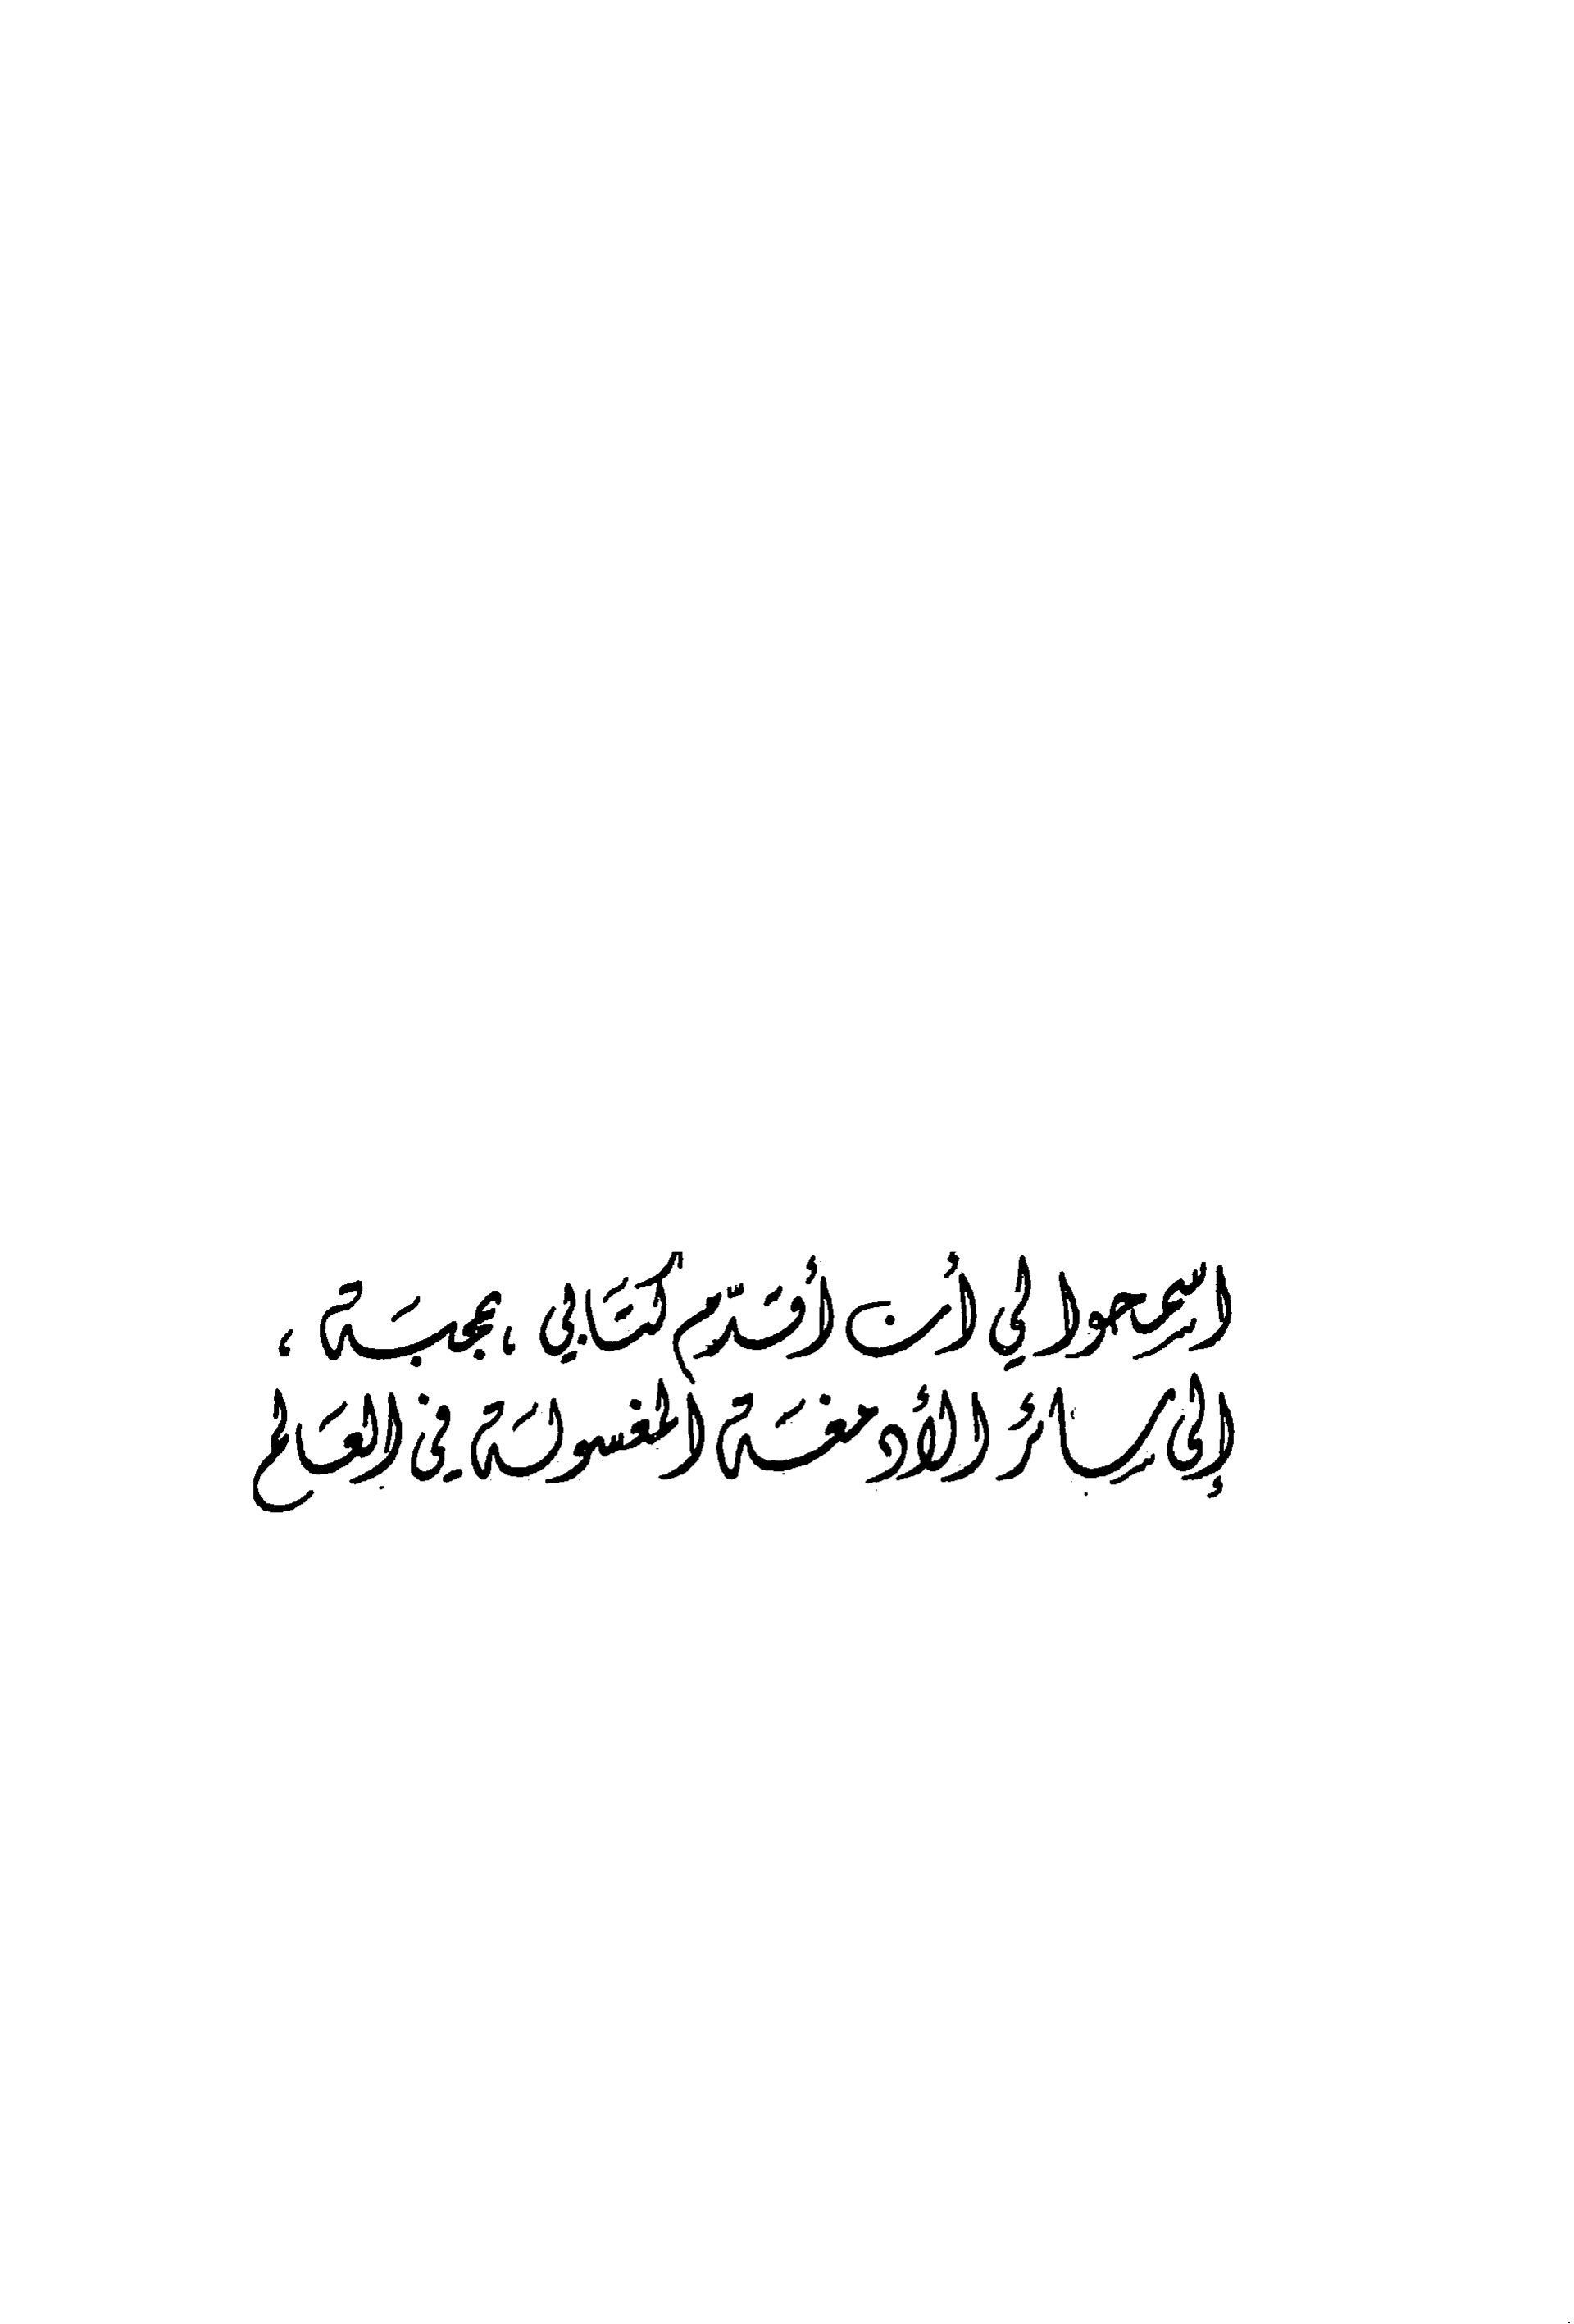 اسمحوا لي أن أقدّم كتابي ، بمحبة ،
إلى سائر الأدمغة المغسولة في العالم